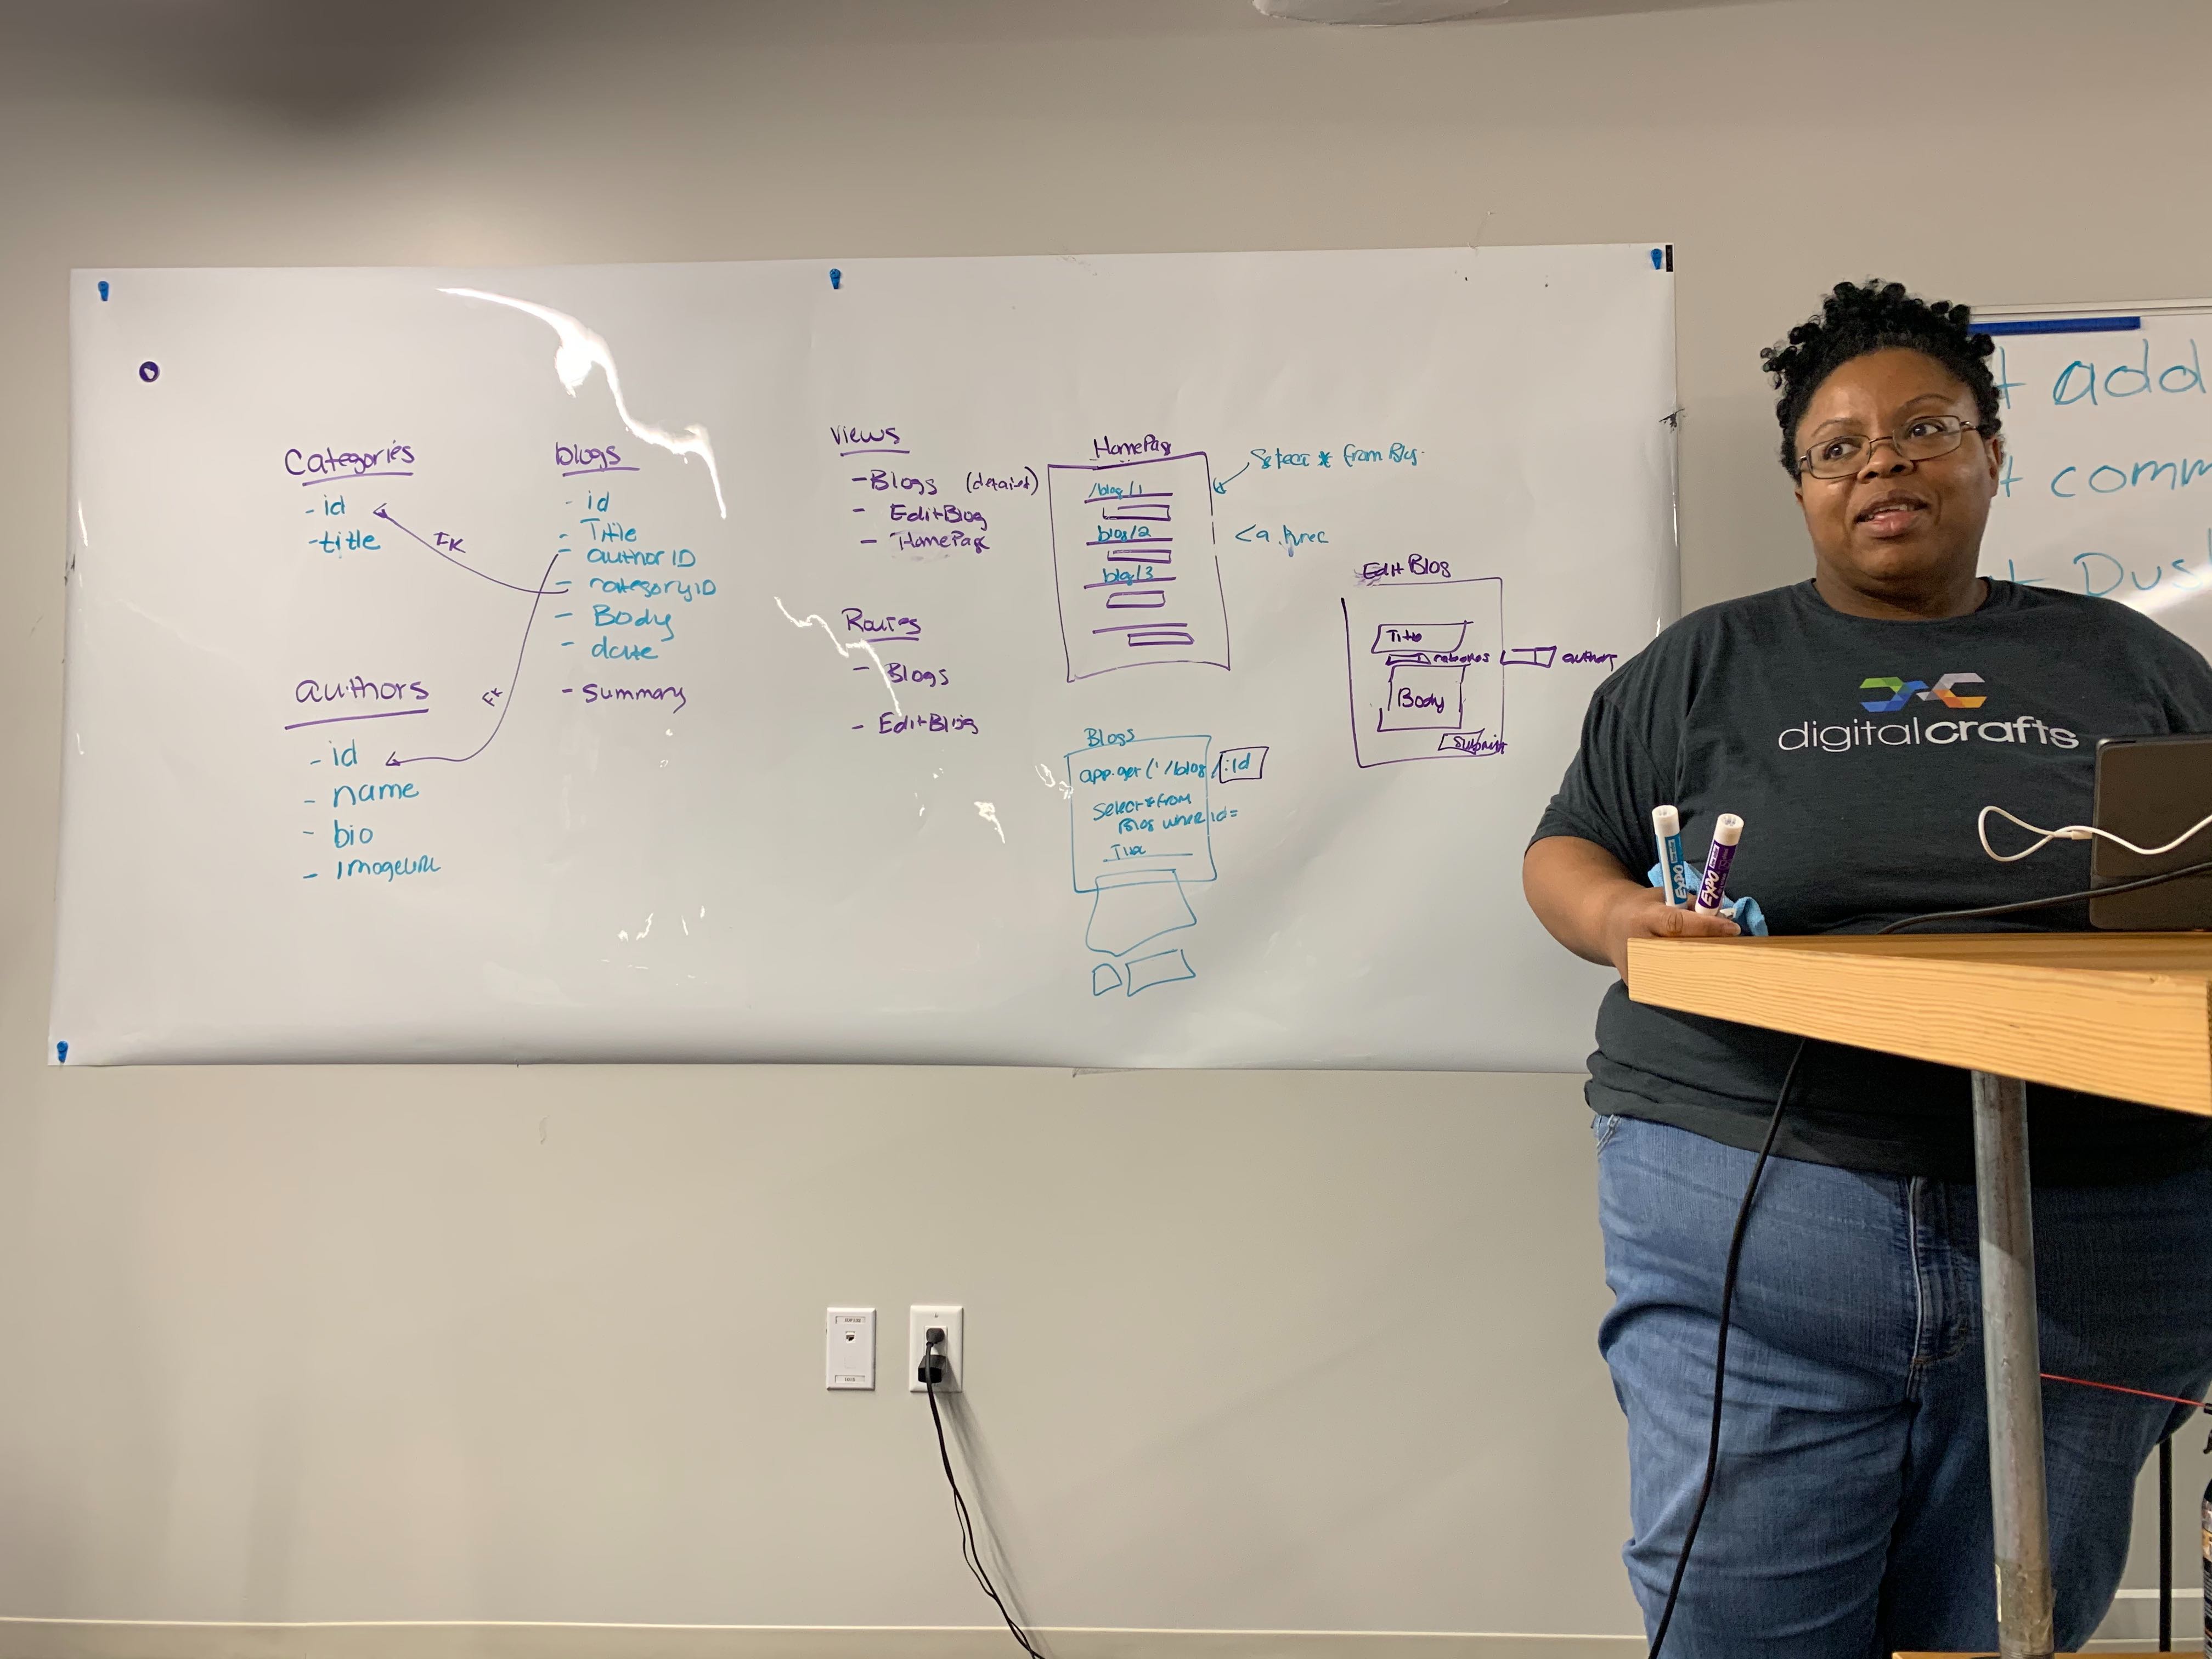 Categories
- id
- title
FK
blogs
- id
- Title
- authorID
- categoryID
- Body
- date
- Summary
authors
- id
- name
- bio
- imageURL
FK
Views
- Blogs (detailed)
- EditBlog
- HomePage
Routes
- Blogs
- EditBlog
HomePage
/blog/1
blog/2
blog/3
Select * from
<a
Blogs
app.get('/blog/:id
Select * from
Blog where id=
Title
Edit Blog
Title
authors
Body
Submit
+ add
+ comm
+ Dus
digitalcrafts
EXPO
EXPO